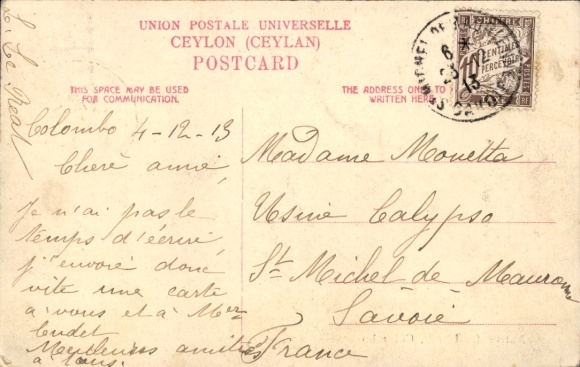 UNION POSTALE UNIVERSELLE
CEYLON (CEYLAN)
POSTCARD
THIS SPACE MAY BE USED
FOR COMMUNICATION.
THE ADDRESS ONLY TO
WRITTEN HERE
Colombo 4-12-13
Chère amie,
Je n'ai pas le
temps d'écrire,
j'envoie donc
vite une carte
à vous et à
Meilleures amitiés
à tous.
Madame Monetta
Usine Calypso
St Michel de
Savoie
France
CHIFFRE
10 CENTIMES
À PERCEVOIR